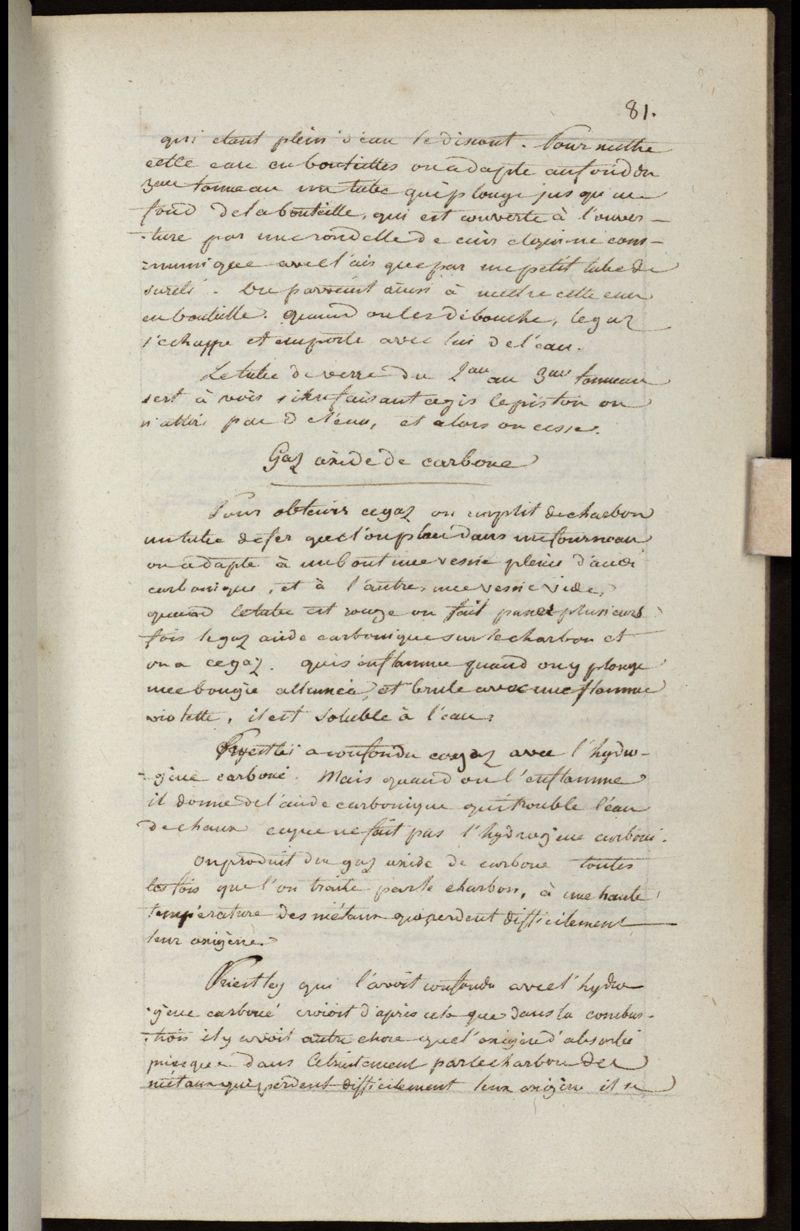 81.
qui etant plein d'eau le dissout. Pour mettre
cette eau en bouteilles on adapte au fond du
3eme tonneau un tube qui plonge jusqu'au
fond de la bouteille, qui est couverte à l'ouver-
-ture par une rondelle de cuir et qui ne com-
-munique avec l'air que par un petit tube de
sureté. On parvient ainsi à mettre cette eau
en bouteille. quand on les débouche, le gaz
s'echappe et emporte avec lui de l'eau.
Le tube de verre du 2eme au 3eme tonneau
sert à voir si en faisant agir le piston on
n'attire pas de l'eau, et alors on cesse.
Gaz oxide de carbone
Pour obtenir ce gaz on emplit de charbon
un tube de fer que l'on place dans un fourneau
on adapte à un bout une vessie pleine d'acide
carbonique, et à l'autre, une vessie vide,
quand le tube est rouge on fait passer plusieurs
fois le gaz acide carbonique sur le charbon et
on a ce gaz. qui s'enflamme quand on y plonge
une bougie allumée, et brule avec une flamme
violette, il est soluble à l'eau.
Priestlei a confondu ce gaz avec l'hydro-
-gène carboné. Mais quand on l'enflamme
il donne de l'acide carbonique qui trouble l'eau
de chaux ce que ne fait pas l'hydrogene carboné.
On produit du gaz oxide de carbone toutes
les fois que l'on traite par le charbon, à une haute
température des métaux qui perdent difficilement
leur oxigène.
Priestley qui l'avoit confondu avec l'hydro
-gène carboné croioit d'après cela que dans la combus-
-tion il y avoit autre chose que l'oxigene d'absorbé
puisque dans le traitement par le charbon des
métaux qui perdent difficilement leur oxigène il se